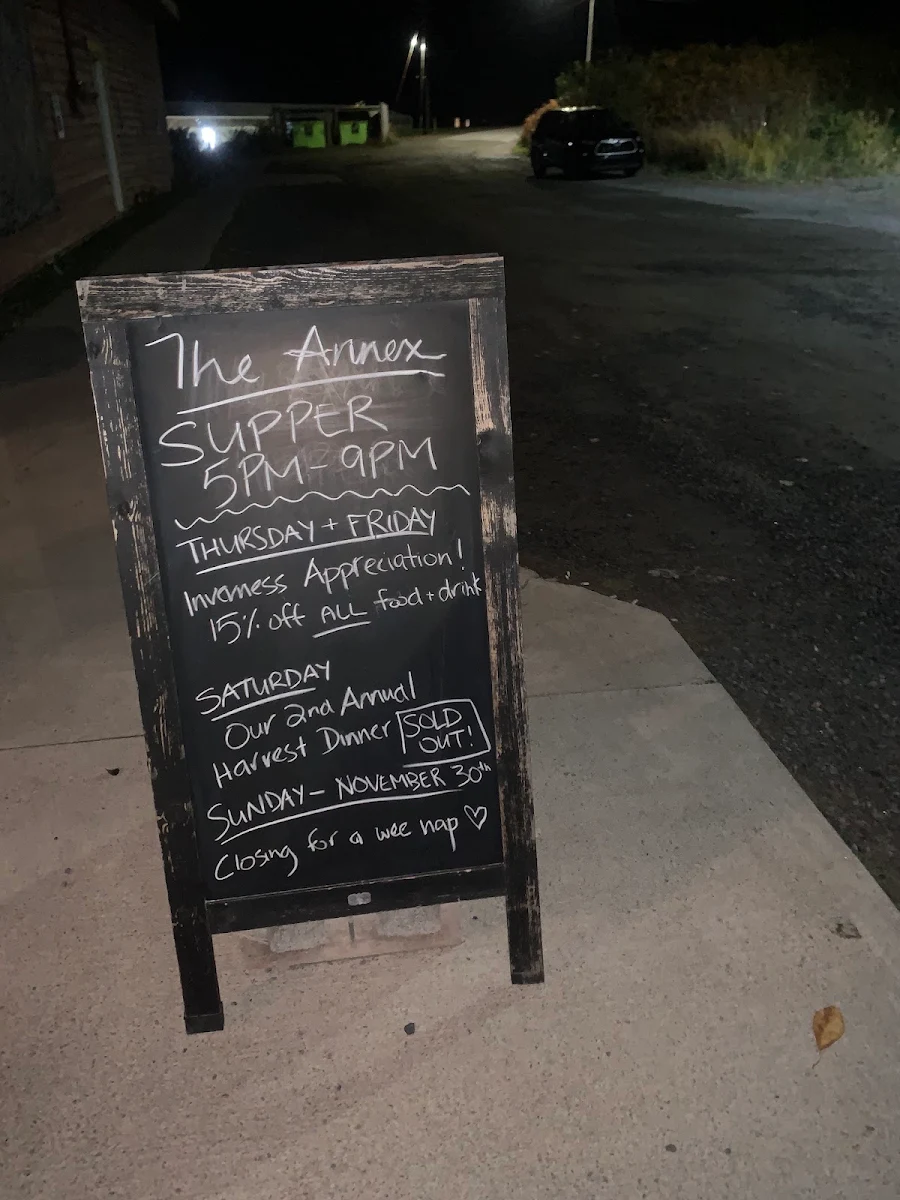 The Annex
SUPPER
5PM - 9PM
THURSDAY + FRIDAY
Inverness Appreciation!
15% off ALL food + drink
SATURDAY
Our 2nd Annual
Harvest Dinner SOLD OUT!
SUNDAY - NOVEMBER 30th
Closing for a wee nap ♡